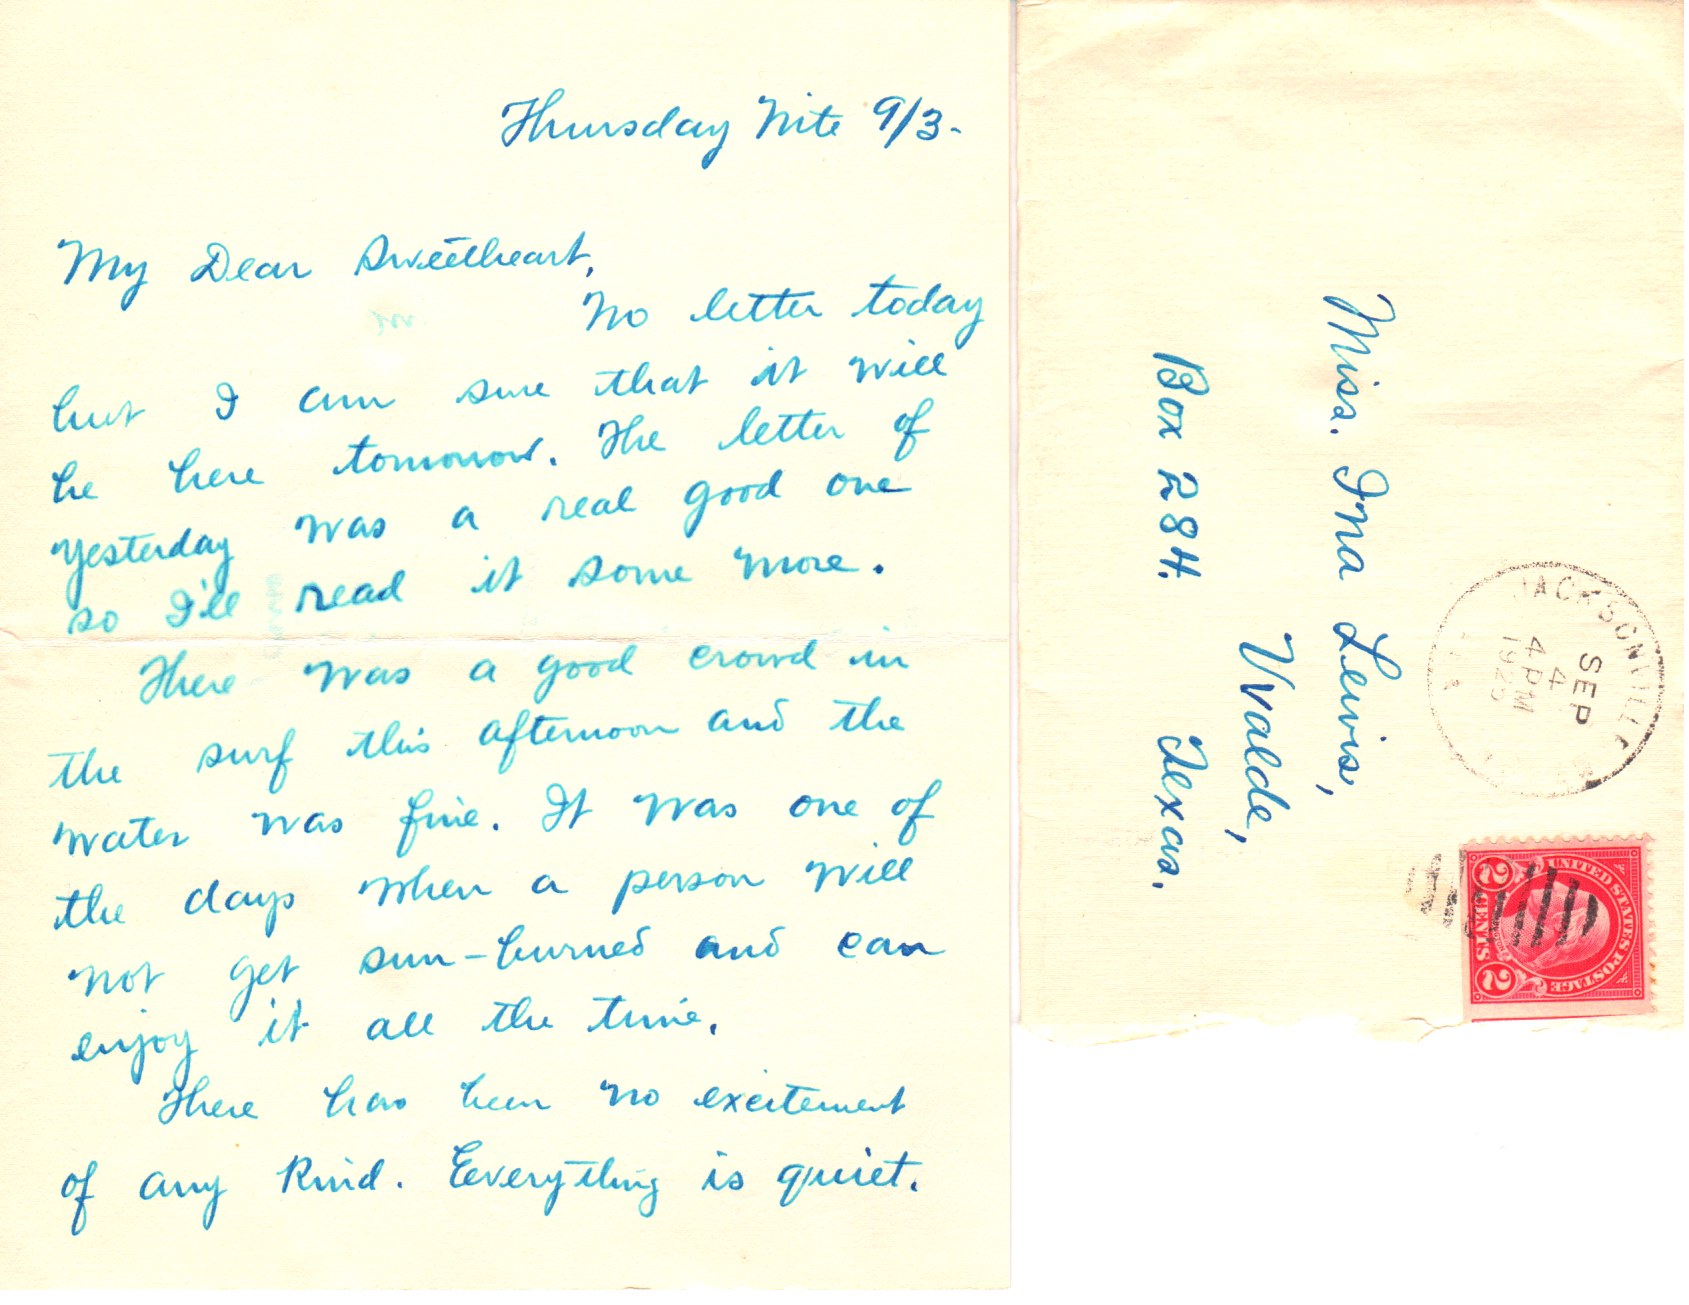 Thursday Nite 9/3-
My Dear Sweetheart,
No letter today
but I am sure that it will
be here tomorrow. The letter of
yesterday was a real good one
so I'll read it some more.
There was a good crowd in
the surf this afternoon and the
water was fine. It was one of
the days when a person will
not get sun-burned and can
enjoy it all the time.
There has been no excitement
of any kind. Everything is quiet.
Miss. Ina Lewis,
Box 284.
Uvalde,
Texas.
JACKSONVILLE
SEP
4
4 PM
1925
UNITED STATES POSTAGE
2 CENTS 2